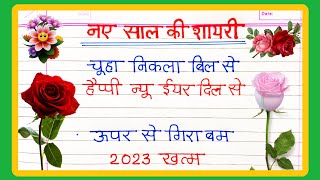 Date:
नए साल की शायरी
चूहा निकला बिल से
हैप्पी न्यू ईयर दिल से
ऊपर से गिरा बम
2023 खत्म